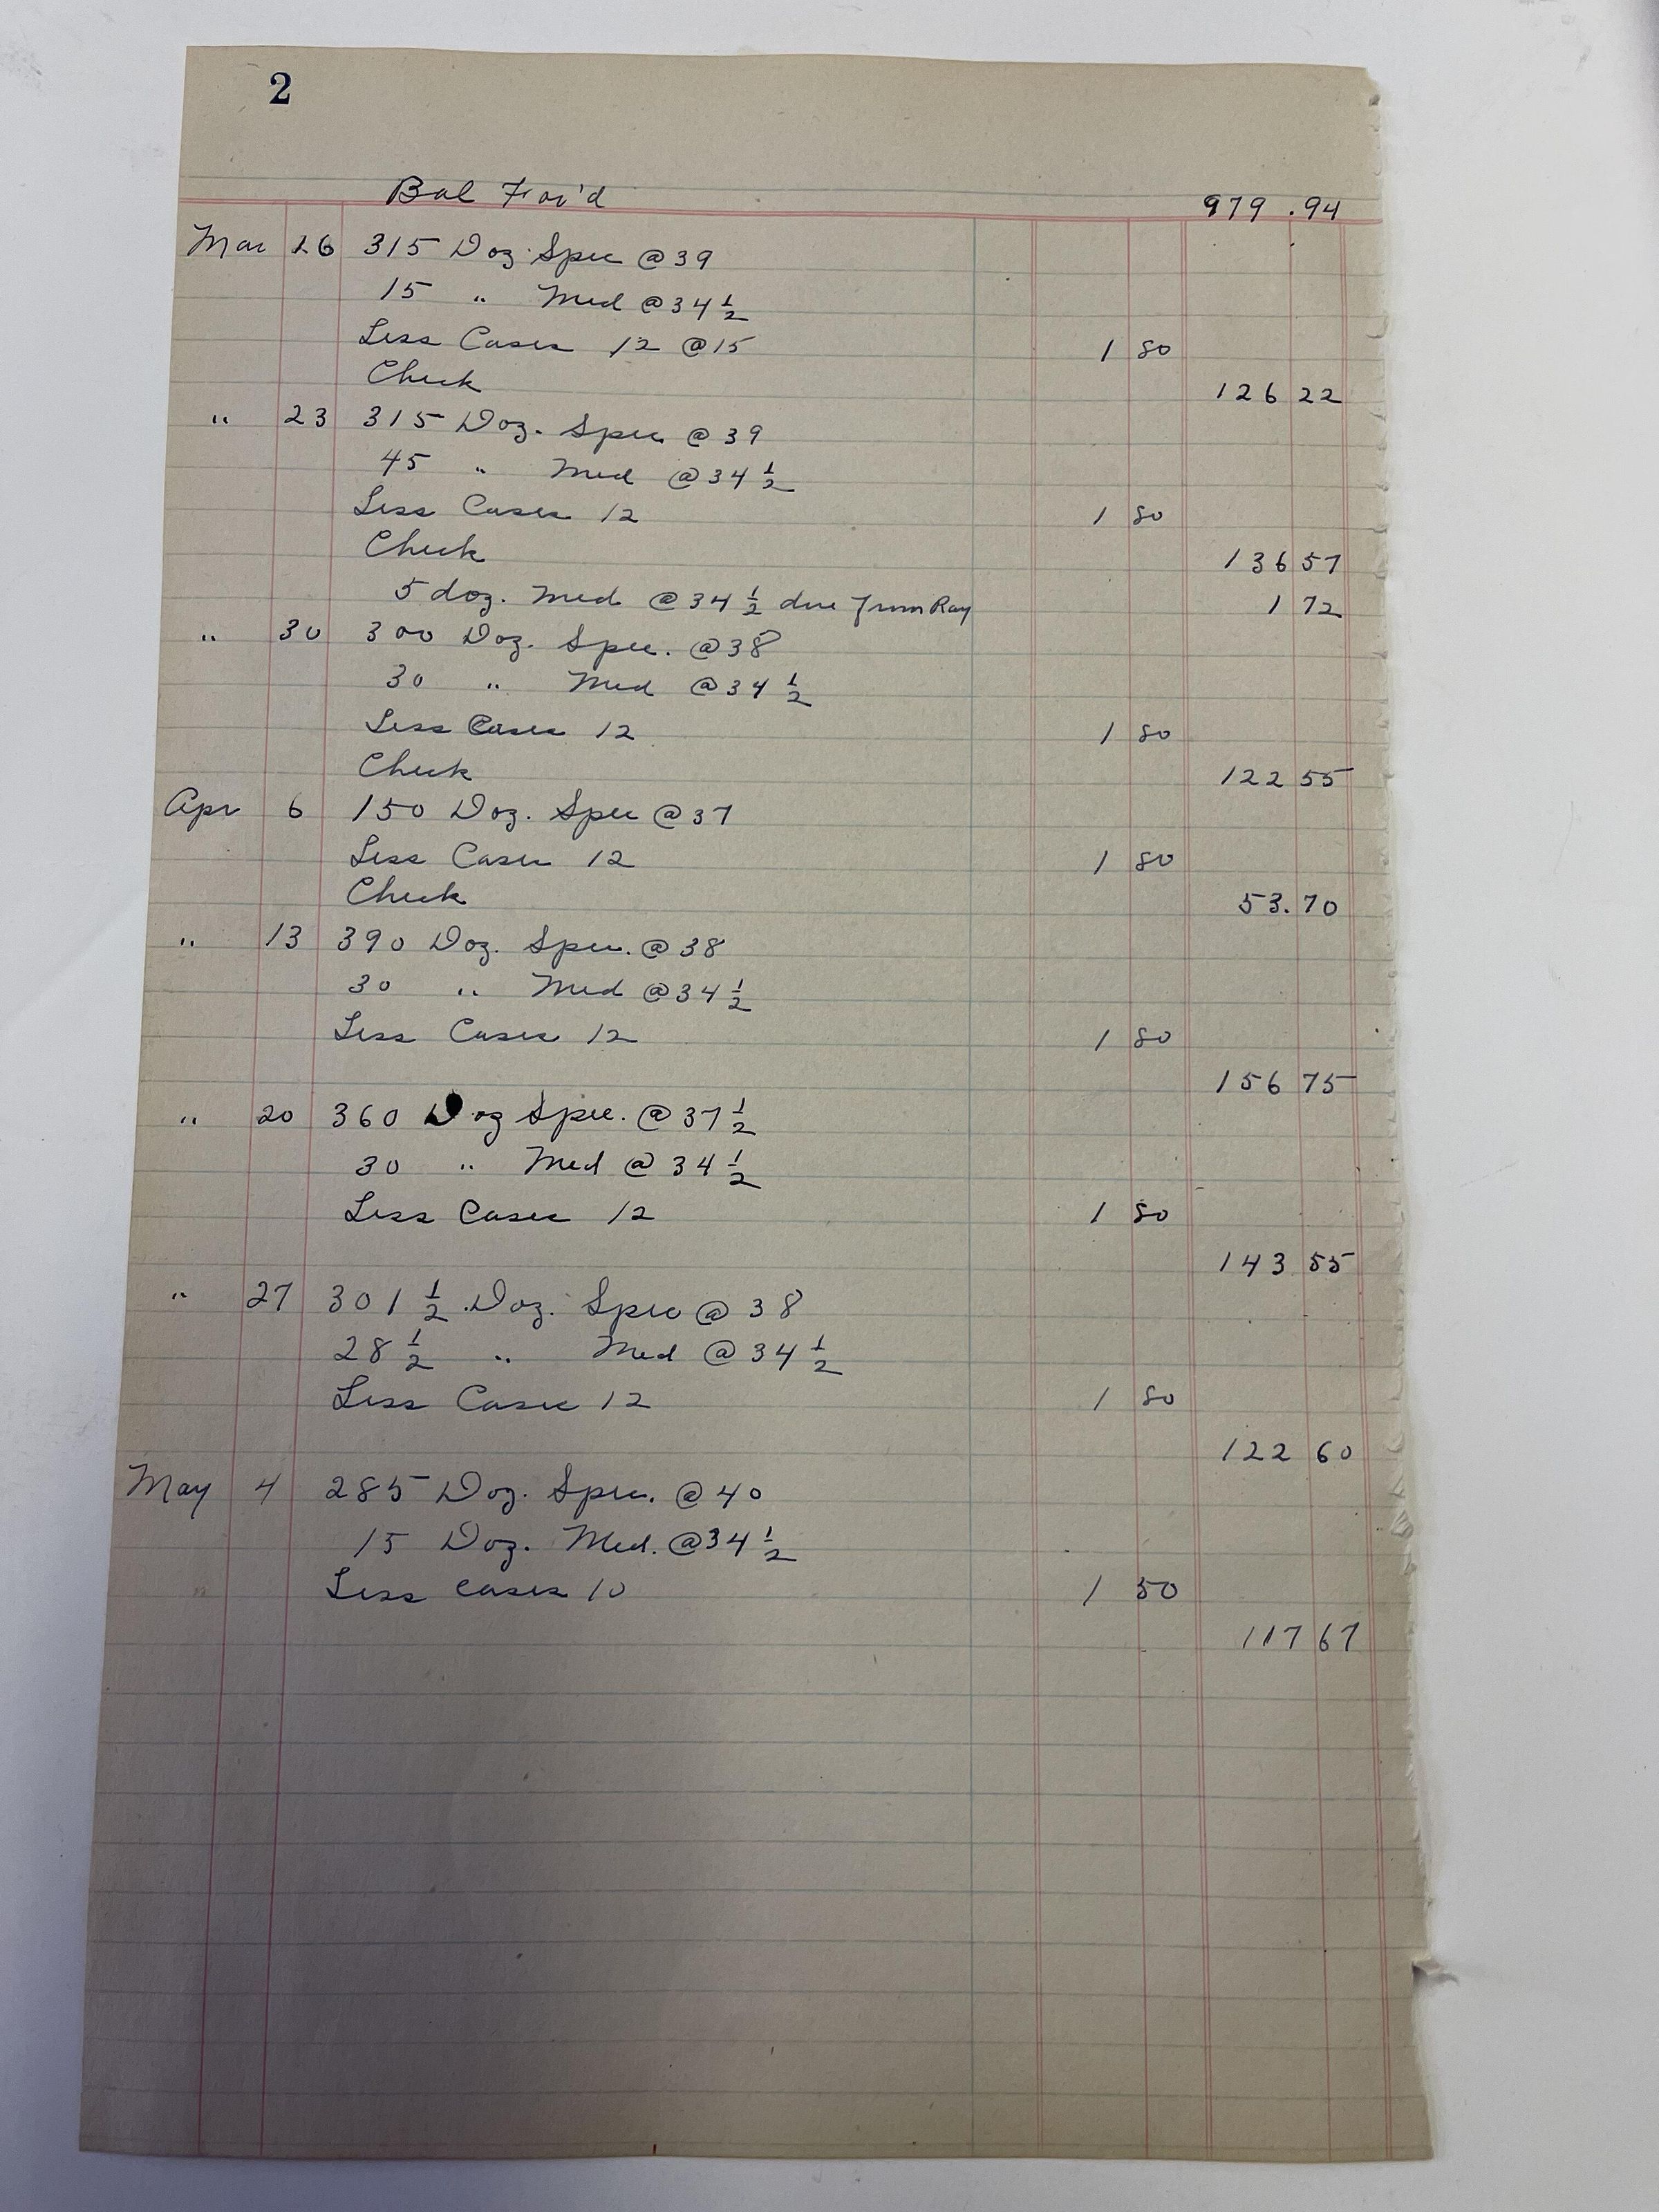 2
Bal For'd 979.94
Mar 26 315 Doz. Spec @ 39
15 " Med @ 34 1/2
Less Cases 12 @ 15 1 80
Check 126 22
" 23 315 Doz. Spec @ 39
45 " Med @ 34 1/2
Less Cases 12 1 80
Check 136 57
5 doz. Med @ 34 1/2 due from Ray 1 72
" 30 300 Doz. Spec. @ 38
30 " Med @ 34 1/2
Less Cases 12 1 80
Check 122 55
Apr 6 150 Doz. Spec @ 37
Less Cases 12 1 80
Check 53.70
" 13 390 Doz. Spec. @ 38
30 " Med @ 34 1/2
Less Cases 12 1 80
156 75
" 20 360 Doz Spec. @ 37 1/2
30 " Med @ 34 1/2
Less Cases 12 1 80
143 55
" 27 301 1/2 Doz. Spec @ 38
28 1/2 " Med @ 34 1/2
Less Cases 12 1 80
122 60
May 4 285 Doz. Spec. @ 40
15 Doz. Med. @ 34 1/2
Less Cases 10 1 50
117 67